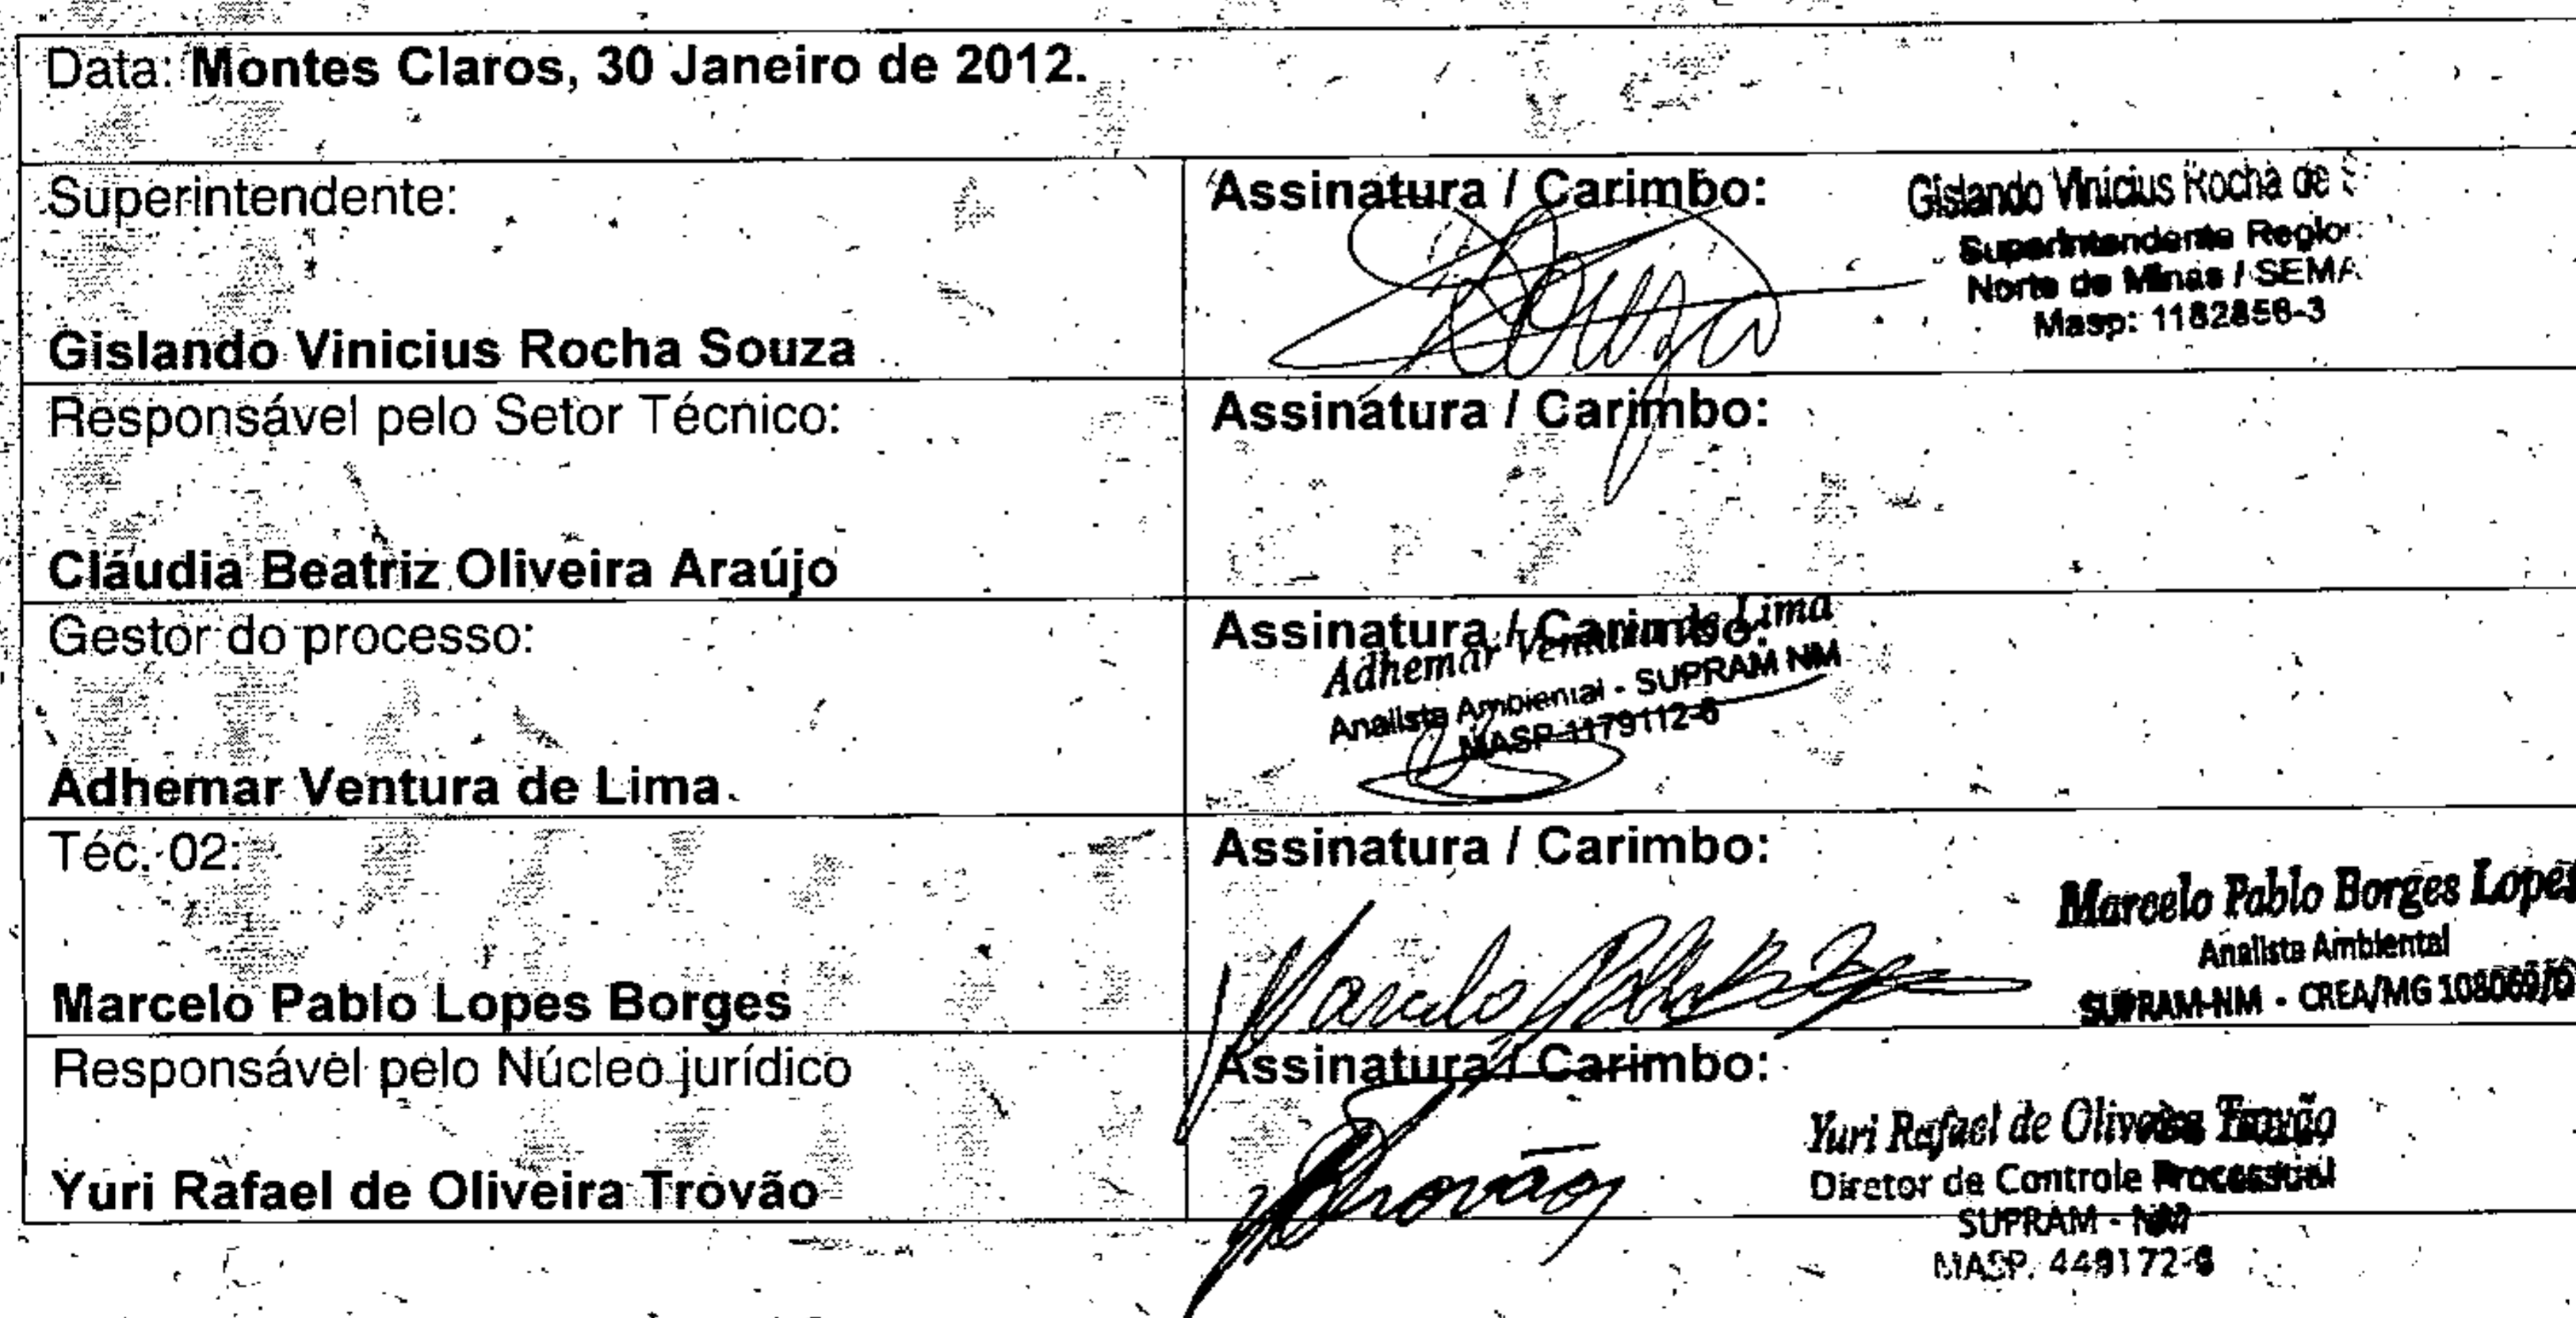 Data: Montes Claros, 30 Janeiro de 2012.
Superintendente:
Gislando Vinicius Rocha Souza
Assinatura / Carimbo:
Souza
Gislando Vinicius Rocha de
Superintendente Regio
Norte de Minas / SEMA
Masp: 1182856-3
Responsável pelo Setor Técnico:
Cláudia Beatriz Oliveira Araújo
Assinatura / Carimbo:
Gestor do processo:
Adhemar Ventura de Lima
Assinatura / Carimbo:
Adhemar Ventura de Lima
Analista Ambiental - SUPRAM NM
MASP 1179112-6
Téc. 02:
Marcelo Pablo Lopes Borges
Assinatura / Carimbo:
Marcelo Pablo
Marcelo Pablo Borges Lopes
Analista Ambiental
SUPRAM-NM - CREA/MG 108069/D
Responsável pelo Núcleo jurídico
Yuri Rafael de Oliveira Trovão
Assinatura / Carimbo:
Trovão
Yuri Rafael de Oliveira Trovão
Diretor de Controle Processual
SUPRAM - NM
MASP. 449172-6